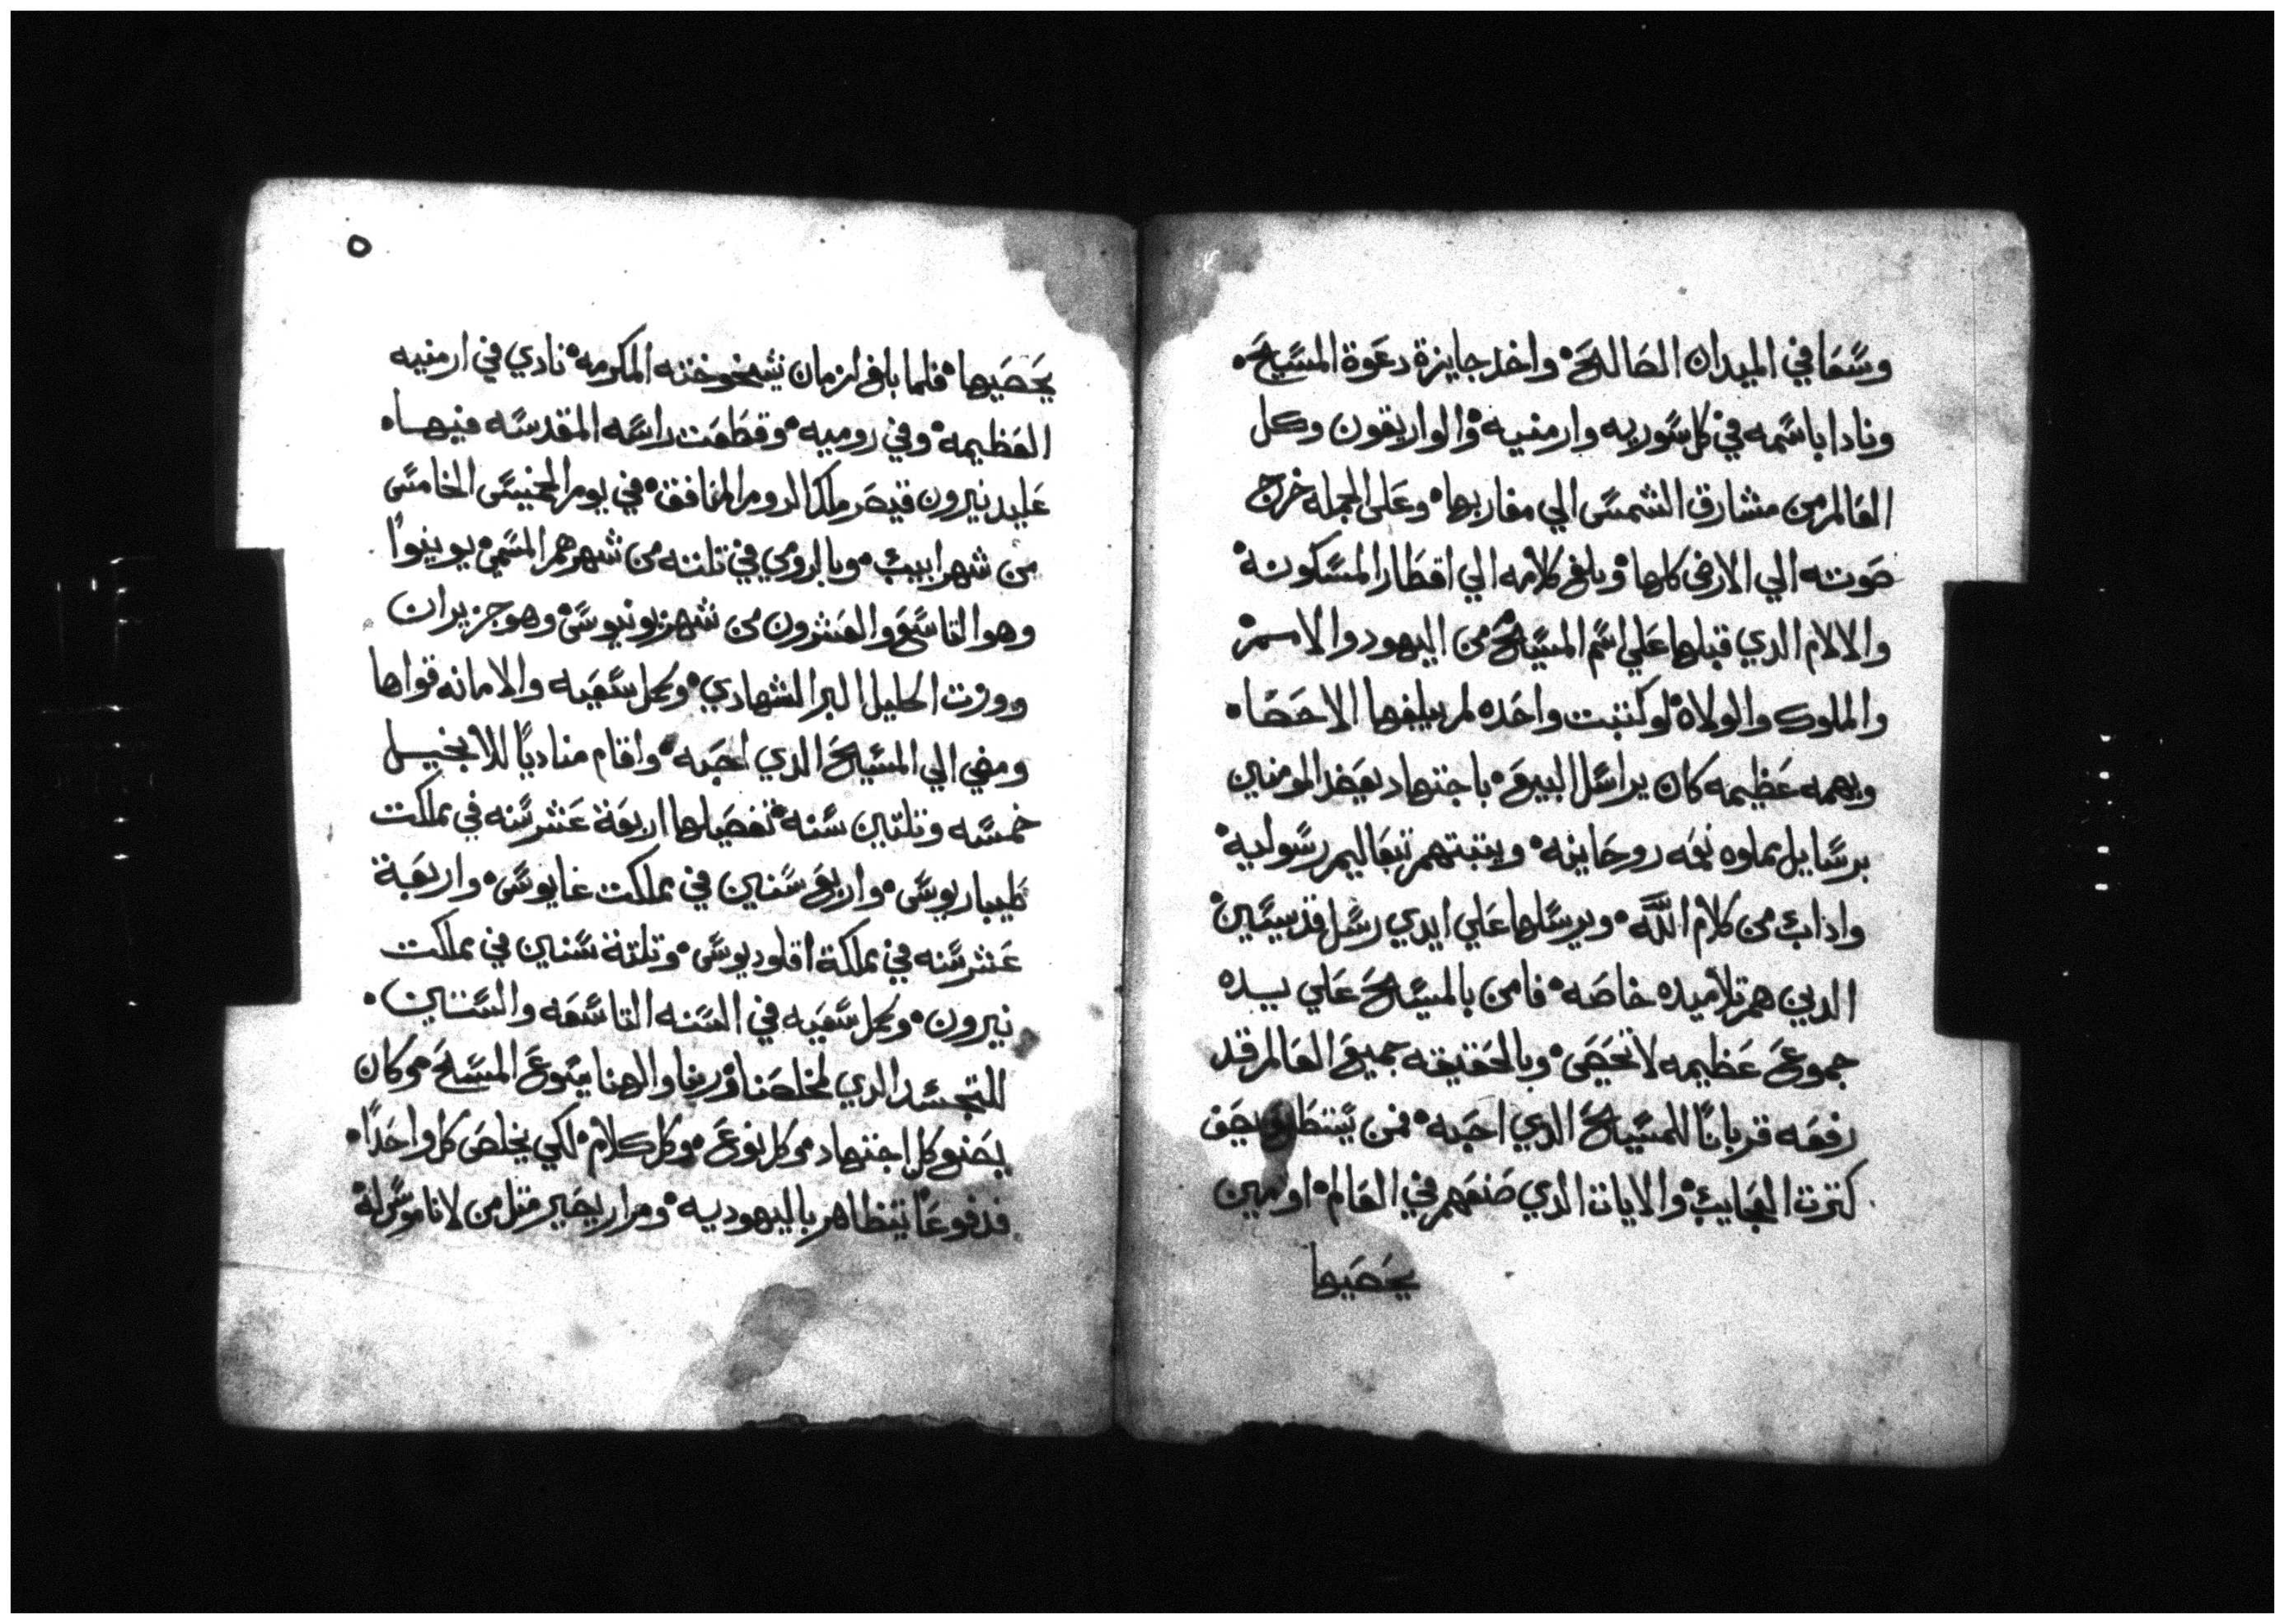 وسعا في الميدان الصالحة واخذ جايزة دعوة المسيح
ونادا باسمه في كل سوريه وارمنيه والواريقون وكل
العالم من مشارق الشمس الي مغاربها وعلى الجمله خرج
صوته الي الارض كلها وبلغ كلامه الي اقطار المسكونة
والالام الدي قبلها علي اسم المسيح من اليهود والامم
والملوك والولاة لو كتبت واحده لم يبلغها الاحصاه
وبهمه عظيمه كان يراسل البيع باجتهاد بعض المومنين
برسايل مملوه نعمه روحاينه ويتبتهم بتعاليم رسوليه
واداب من كلام الله ويرسلها علي ايدي رسل قديسين
الدين هم تلاميده خاصه فامن بالمسيح علي يده
جموع عظيمه لا تحصى وبالحقيقه جميع العالم قد
رفعه قربانا للمسيح الدي احبه فمن يستطيع يصف
كترت العجايب والايات الدي صنعهم في العالم او من
يحصيها
٥
يحصيها فلما بلغ لزمان شيخوخته المكرمه نادي في ارمنيه
العظيمه وفي روميه وقطعت راسه المقدسه فيها
عليد نيرون قيصر ملك الروم المنافق في يوم الخميس الخامس
من شهر ابيب وبالرومي في تلته من شهرهم المسمي يوينوا
وهو التاسع والعشرون من شهر يونيوس وهو حزيران
وورت اكليل البر الشهادي وكمل سعيه والامانه قواها
ومضي الي المسيح الدي احبه واقام مناديا للانجيل
خمسه وتلتين سنه تفصيلها اربعة عشر سنه في مملكت
طيباريوس واربع سنين في مملكت غايوس واربعة
عشر سنه في مملكة اقلوديوس وتلتة سنين في مملكت
نيرون وكمل سعيه في السنه التاسعه والستين
للتجسد الدي لمخلصنا وربنا والهنا يسوع المسيح وكان
يصنع كل اجتهاد وكل نوع وكل كلام لكي يخلص كل واحدا
فدفوعا يتظاهر باليهوديه ومرار يصير متل من لا ناموس له